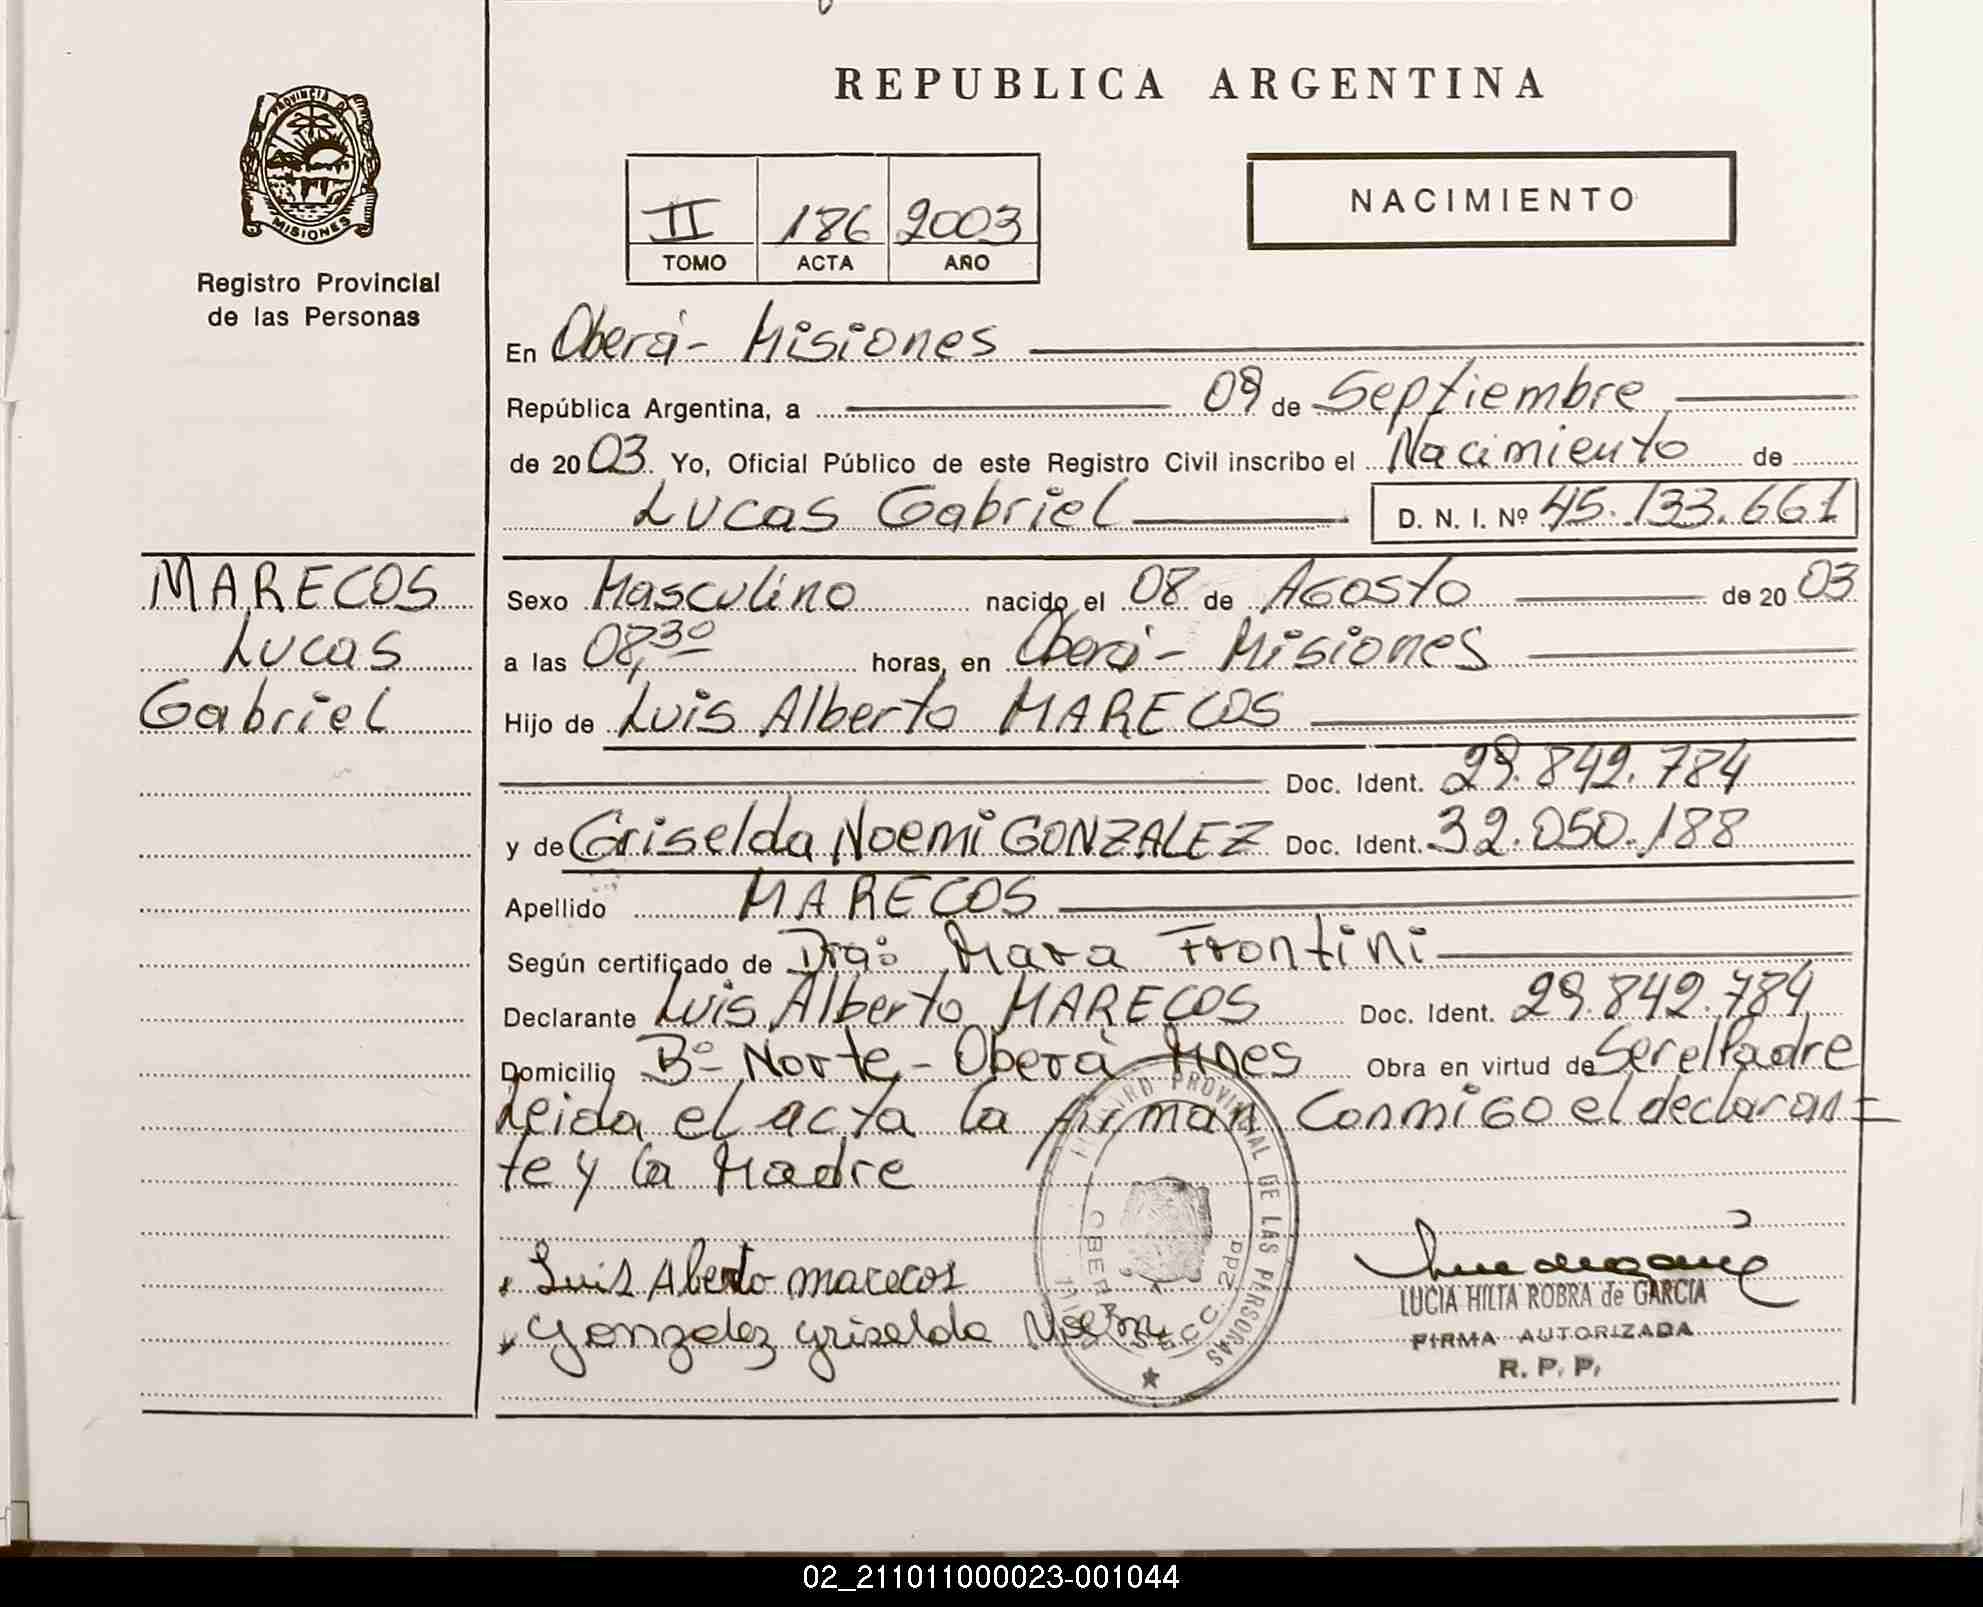 REPUBLICA ARGENTINA
PROVINCIA DE
MISIONES
Registro Provincial
de las Personas
II 186 2003
TOMO ACTA AÑO
NACIMIENTO
En Oberá - Misiones
República Argentina, a 09 de Septiembre
de 2003. Yo, Oficial Público de este Registro Civil inscribo el Nacimiento de
Lucas Gabriel D. N. I. Nº 45.133.661
MARECOS
Lucas
Gabriel
Sexo Masculino nacido el 08 de Agosto de 2003
a las 08,30 horas, en Oberá - Misiones
Hijo de Luis Alberto MARECOS
Doc. Ident. 29.842.784
y de Griselda Noemi GONZALEZ Doc. Ident. 32.050.188
Apellido MARECOS
Según certificado de Dra: Mara Frontini
Declarante Luis Alberto MARECOS Doc. Ident. 29.842.784
Domicilio Bº Norte - Oberá Mnes Obra en virtud de Ser el Padre
Leida el acta la firman Conmigo el declaran=
te y la Madre
Luis Alberto marecos
Gonzalez griselda Noemi
REGISTRO PROVINCIAL DE LAS PERSONAS
OBERA SECC. 2da
LUCIA HILTA ROBRA de GARCIA
FIRMA AUTORIZADA
R. P. P.
02_211011000023-001044